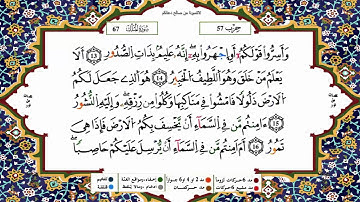 لاتنسونا من صالح دعائكم
حزب 57
سورة الملك 67
وَأَسِرُّوا۟ قَوْلَكُمْ أَوِ ٱجْهَرُوا۟ بِهِۦٓ ۖ إِنَّهُۥ عَلِيمٌۢ بِذَاتِ ٱلصُّدُورِ 13 أَلَا
يَعْلَمُ مَنْ خَلَقَ وَهُوَ ٱللَّطِيفُ ٱلْخَبِيرُ 14 هُوَ ٱلَّذِى جَعَلَ لَكُمُ
ٱلْأَرْضَ ذَلُولًا فَٱمْشُوا۟ فِى مَنَاكِبِهَا وَكُلُوا۟ مِن رِّزْقِهِۦ ۖ وَإِلَيْهِ ٱلنُّشُورُ
15 ءَأَمِنتُم مَّن فِى ٱلسَّمَآءِ أَن يَخْسِفَ بِكُمُ ٱلْأَرْضَ فَإِذَا هِىَ
تَمُورُ 16 أَمْ أَمِنتُم مَّن فِى ٱلسَّمَآءِ أَن يُرْسِلَ عَلَيْكُمْ حَاصِبًا ۖ